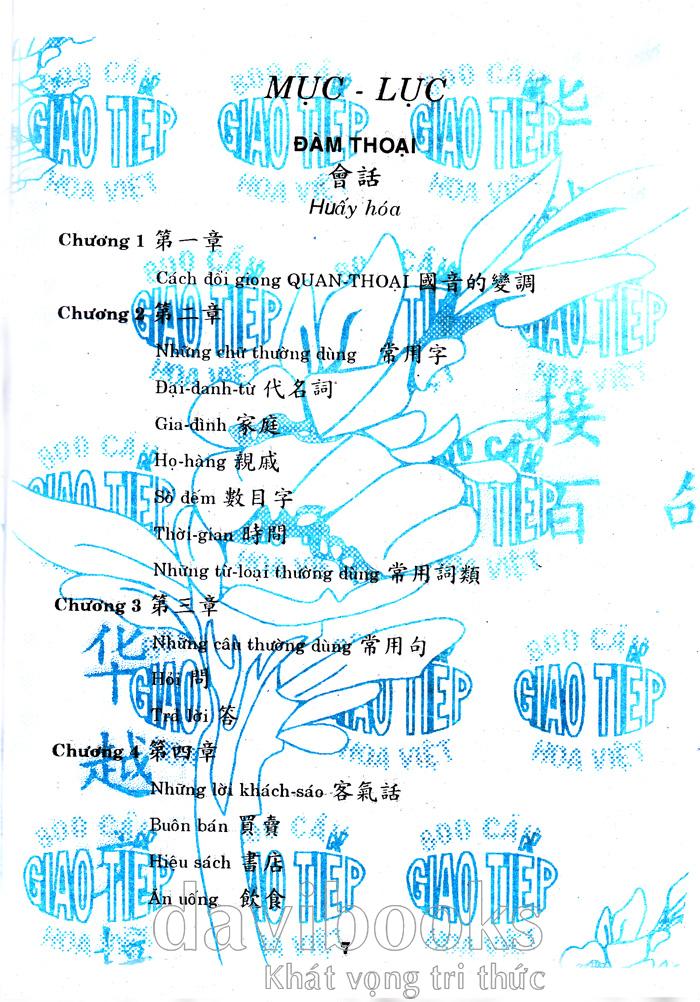 MỤC - LỤC
ĐÀM THOẠI
會話
Huấy hóa
Chương 1 第一章
Cách đổi giọng QUAN-THOẠI 國音的變調
Chương 2 第二章
Những chữ thường dùng 常用字
Đại-danh-từ 代名詞
Gia-đình 家庭
Họ-hàng 親戚
Số đếm 數目字
Thời-gian 時間
Những từ-loại thường dùng 常用詞類
Chương 3 第三章
Những câu thường dùng 常用句
Hỏi 問
Trả lời 答
Chương 4 第四章
Những lời khách-sáo 客氣話
Buôn bán 買賣
Hiệu sách 書店
Ăn uống 飲食
7
davibooks
Khát vọng tri thức
900 CÂU
GIAO TIẾP
HOA VIỆT
华
接
百
句
华
越